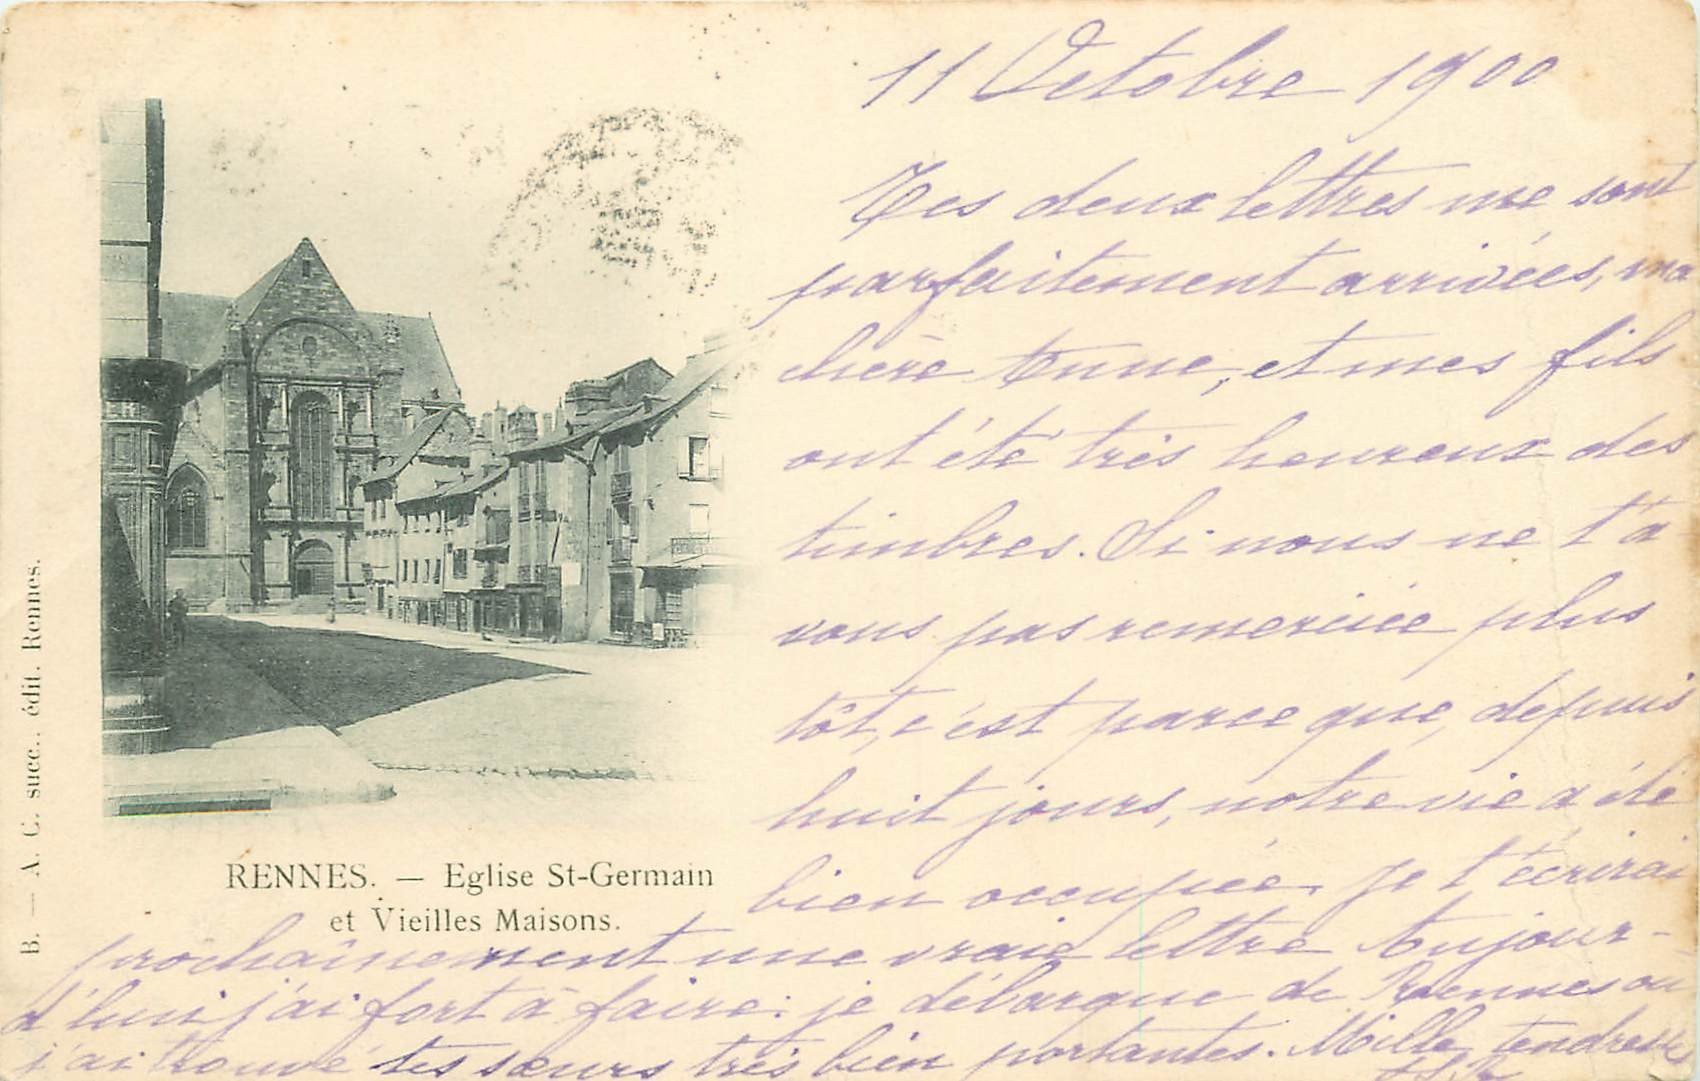 11 Octobre 1900
Tes deux lettres me sont
parfaitement arrivées, ma
chère Anne, et mes fils
ont été très heureux des
timbres. Si nous ne t'a
vons pas remerciée plus
tôt, c'est parce que, depuis
huit jours, notre vie a été
bien occupée. Je t'écrirai
prochaînement une vraie lettre Aujour-
d'hui j'ai fort à faire: je débarque de Rennes où
j'ai trouvé tes sœurs très bien portantes. Mille tendresses
RENNES. — Eglise St-Germain
et Vieilles Maisons.
B. — A. C. succ., édit. Rennes.